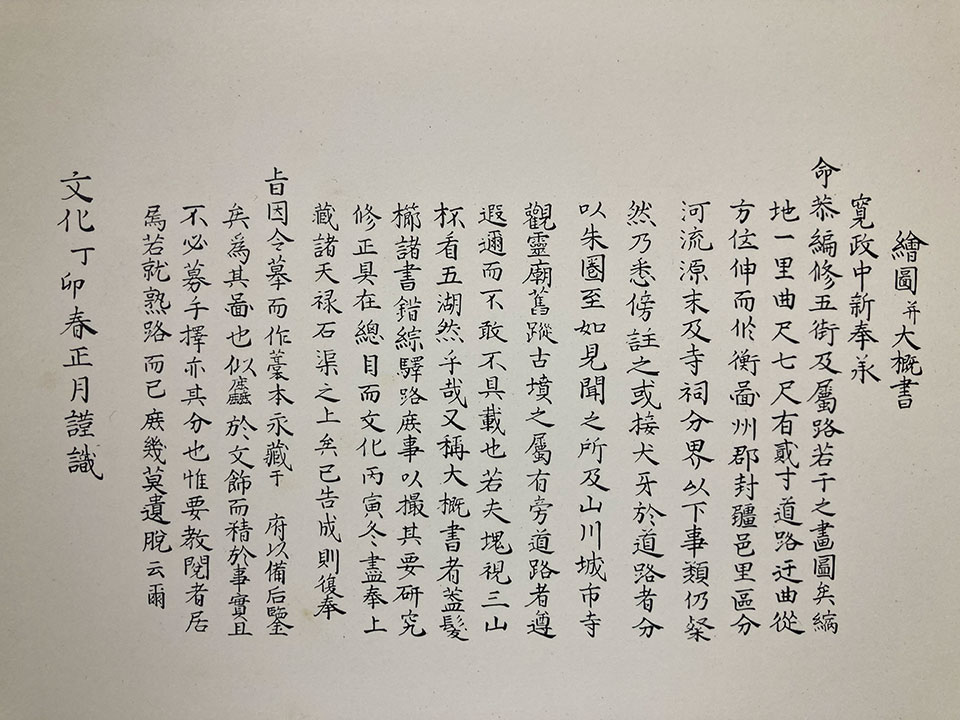 繪圖并大概書
寛政中新奉承
命恭編修五街及屬路若干之畫圖矣縮
地一里曲尺七尺有貳寸道路迂曲從
方位伸而作衡啚州郡封疆邑里區分
河流源末及寺祠分界以下事類仍粲
然乃悉傍註之或接犬牙於道路者分
以朱圏至如見聞之所及山川城市寺
觀靈廟舊蹤古墳之屬有旁道路者遵
遐邇而不敢不具載也若夫塊視三山
杯看五湖然乎哉又稱大概書者盖髮
櫛諸書錯綜驛路庶事以撮其要研究
修正具在總目而文化丙寅冬盡奉上
藏諸天禄石渠之上矣已告成則復奉
旨因令摹而作藁本永藏于 府以備后鑒
矣爲其啚也似麤於文飾而精於事實且
不必募手擇亦其分也惟要教閲者居
焉若就熟路而已庶幾莫遺脱云爾
文化丁卯春正月謹識